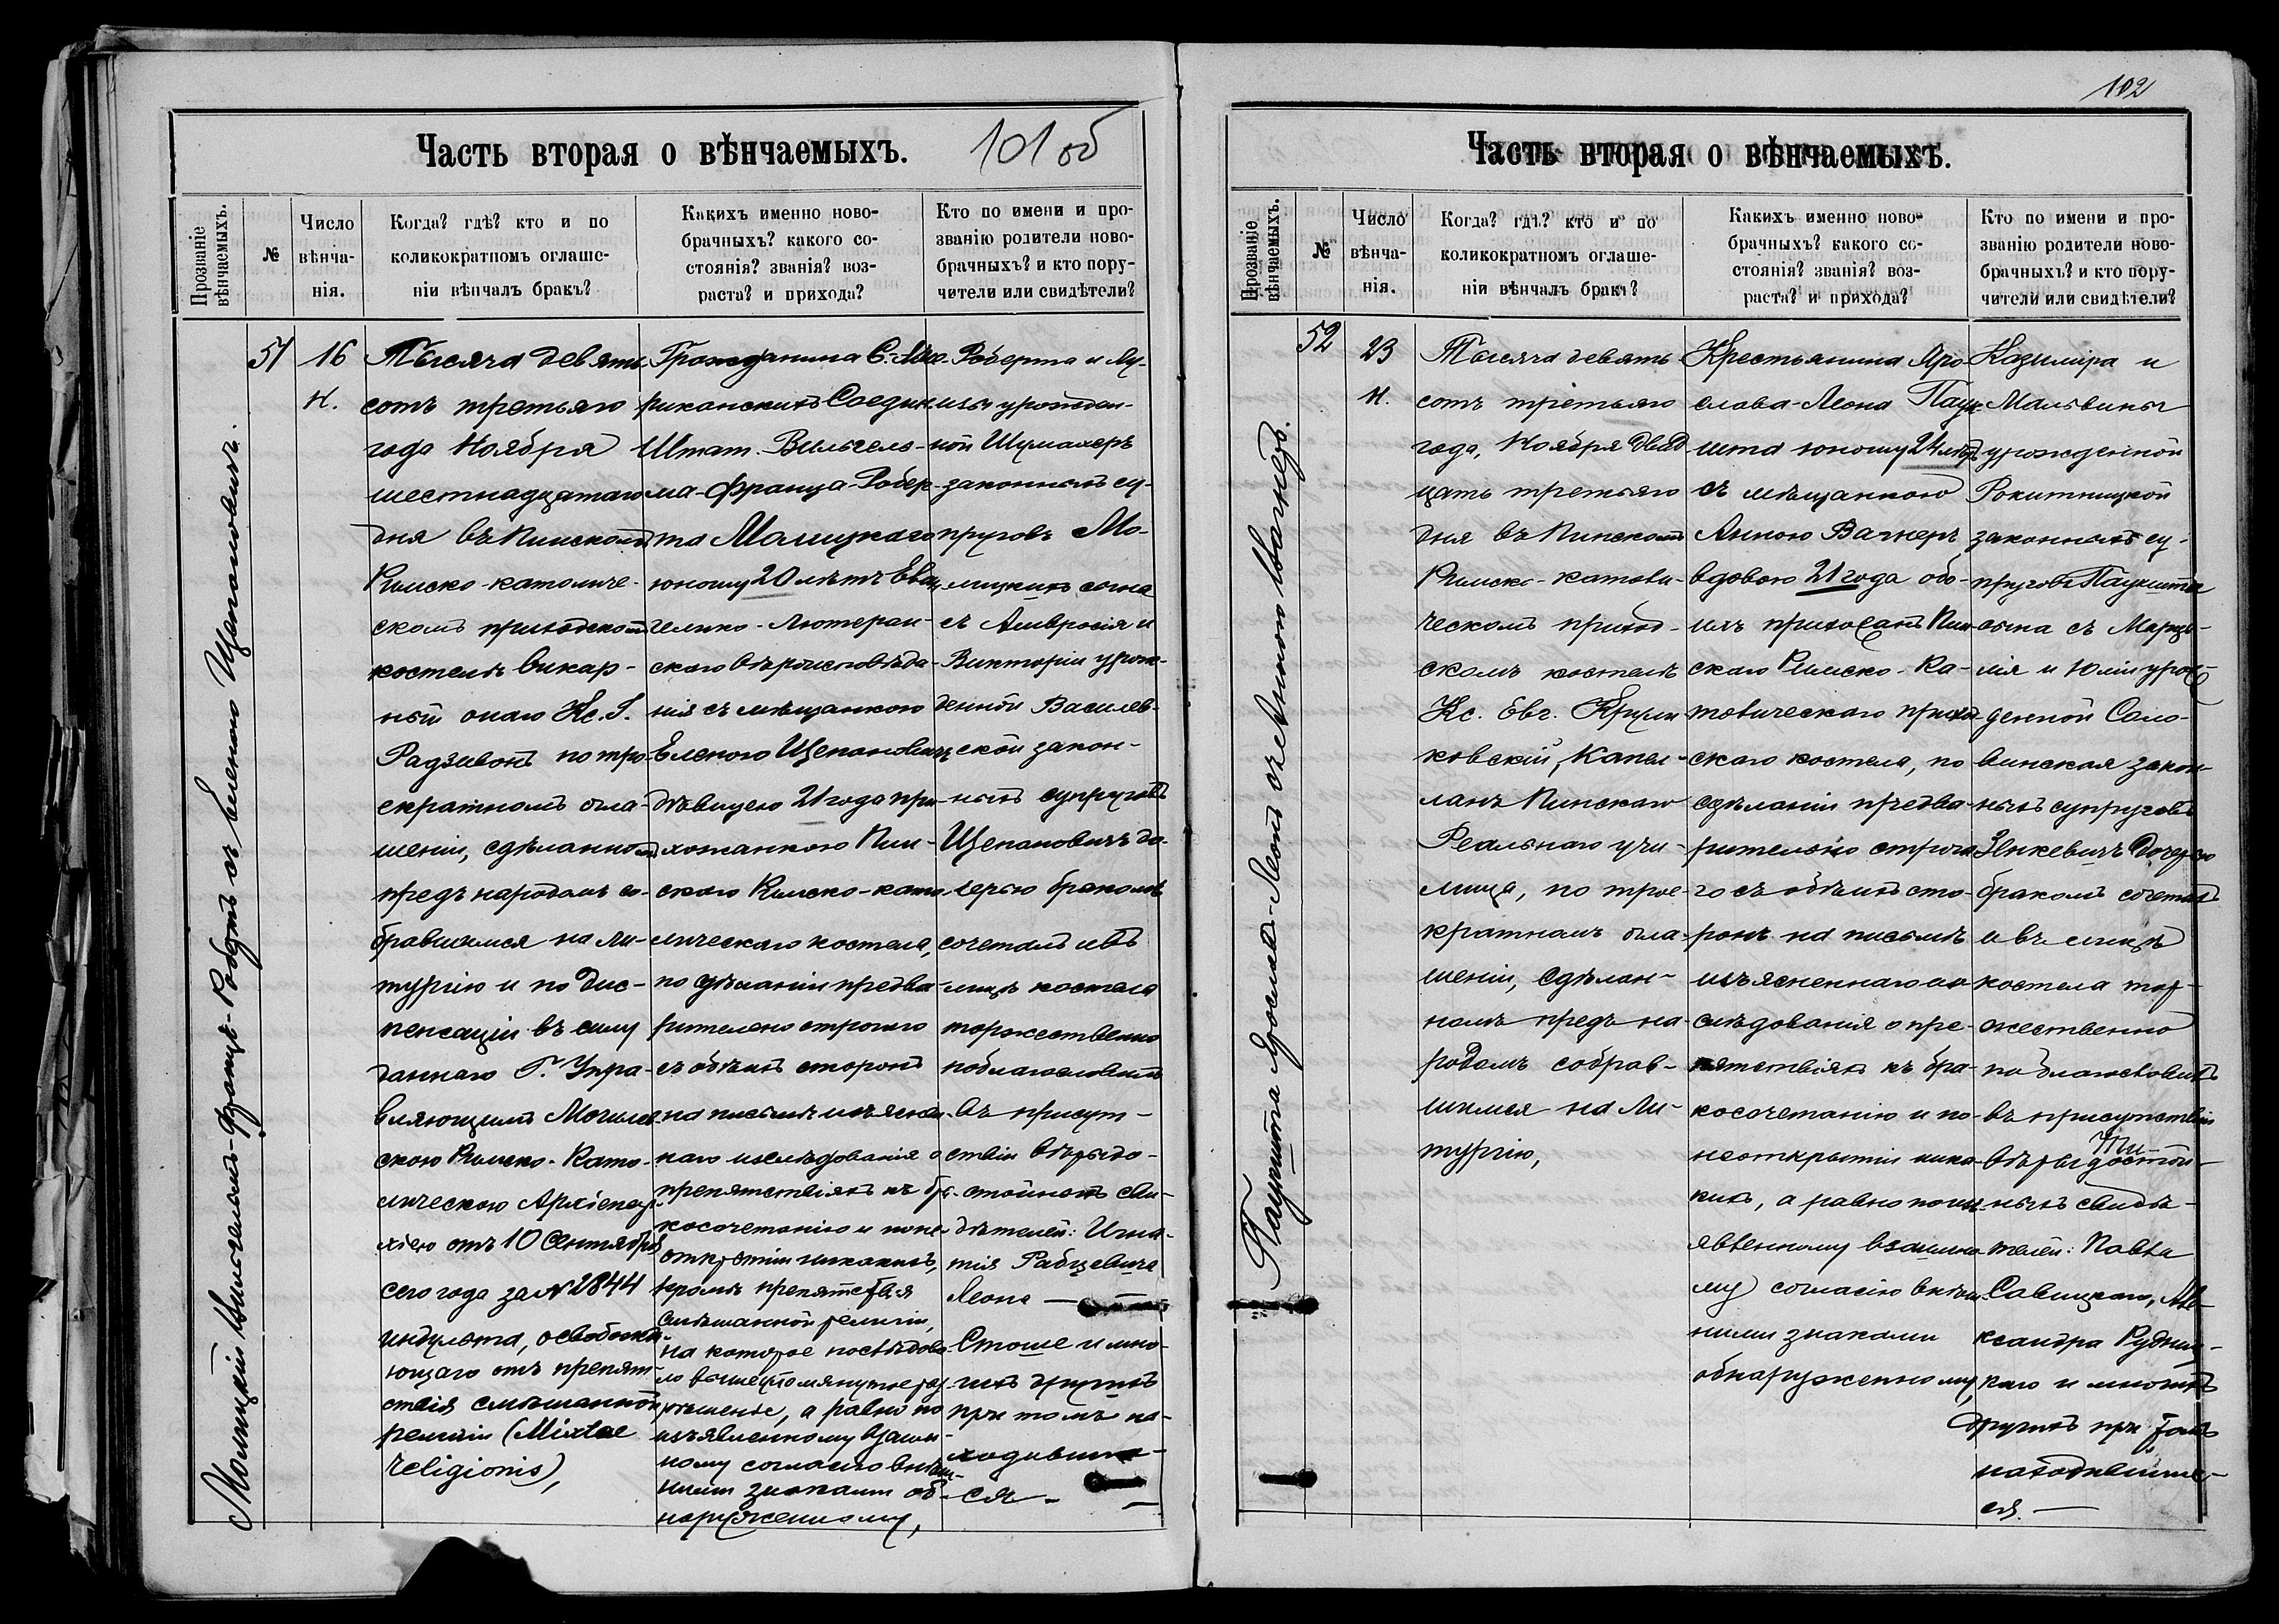 101 об
Часть вторая о вѣнчаемыхъ.
Прозваніе вѣнчаемыхъ.
№
Число вѣнча-
нія.
Когда? гдѣ? кто и по
коликократномъ оглаше-
ніи вѣнчалъ бракъ?
Какихъ именно ново-
брачныхъ? какого со-
стоянія? званія? воз-
раста? и прихода?
Кто по имени и про-
званію родители ново-
брачныхъ? и кто пору-
чители или свидѣтели?
Молицкій Вильгельмъ-Францъ-Робертъ съ Еленою Щепановичъ.
51
16
Н.
Тысяча девять-
сотъ третьяго
года Ноября
шестнадцатаго
дня въ Пинскомъ
Римско-католиче-
скомъ приходскомъ
костелѣ викар-
ный онаго Кс. І.
Радзивонъ по тро-
екратномъ огла-
шеніи, сдѣланномъ
предъ народомъ со-
бравшимся на ли-
тургію и по дис-
пенсаціи въ силу
даннаго Г. Упра-
вляющимъ Могилев-
скою Римско-Като-
лическою Архіепар-
хіею отъ 10 Сентября
сего года за № 2844
индульта, освобожда-
ющаго отъ препят-
ствія смѣшанной
религіи (Mixtae
religionis),
Гражданина С.-Аме-
риканскихъ Соедин.
Штат. Вильгель-
ма-Франца-Робер-
та Молицкаго
юношу 20 лѣтъ Еван-
гелико-Лютеран-
скаго вѣроисповѣда-
нія съ мѣщанкою
Еленою Щепановичъ
дѣвицею 21 года при-
хожанкою Пин-
скаго Римско-като-
лическаго костела,
по сдѣланіи предва-
рительно строгаго
съ обѣихъ сторонъ
на письмѣ изъяснен-
наго изслѣдованія о
препятствіяхъ къ бра-
косочетанію и по не-
открытіи никакихъ,
кромѣ препятствія
смѣшанной религіи,
на которое послѣдова-
ло вышеупомянутое раз-
рѣшеніе, а равно по
изъявленному взаим-
ному согласію внѣш-
ними знаками об-
наруженному,
Роберта и Лу-
изы урожден-
ной Шумахеръ
законныхъ су-
пруговъ Мо-
лицкихъ сына
съ Амвросія и
Викторіи урож-
денной Василев-
ской закон-
ныхъ супруговъ
Щепановичъ до-
черью бракомъ
сочеталъ и въ
лицѣ костела
торжественно
поблагословилъ
въ присут-
ствіи вѣрыдо-
стойныхъ сви-
дѣтелей: Игна-
тія Рабцевича
Леона —
Стоше и мно-
гихъ другихъ
при томъ на-
ходивших-
ся. —
102
Часть вторая о вѣнчаемыхъ.
Прозваніе вѣнчаемыхъ.
№
Число вѣнча-
нія.
Когда? гдѣ? кто и по
коликократномъ оглаше-
ніи вѣнчалъ бракъ?
Какихъ именно ново-
брачныхъ? какого со-
стоянія? званія? воз-
раста? и прихода?
Кто по имени и про-
званію родители ново-
брачныхъ? и кто пору-
чители или свидѣтели?
Паукшта Ярославъ-Леонъ съ Анною Вагнеръ.
52
23
Н.
Тысяча девять
сотъ третьяго
года, Ноября двад-
цать третьяго
дня въ Пинскомъ
Римско-католи-
ческомъ приход-
скомъ костелѣ
Кс. Евг.
Капел-
ланъ Пинскаго
Реальнаго учи-
лища, по трое-
кратномъ огла-
шеніи, сдѣлан-
номъ предъ на-
родомъ собрав-
шимся на Ли-
тургію,
Крестьянина Яро-
слава-Леона Паук-
шта юношу 24 лѣтъ
съ мѣщанкою
Анною Вагнеръ
вдовою 21 года обо-
ихъ прихожанъ Пин-
скаго Римско-Ка-
толическаго приход-
скаго костела, по
сдѣланіи предва-
рительно строга-
го съ обѣихъ сто-
ронъ на письмѣ
изъясненнаго из-
слѣдованія о пре-
пятствіяхъ къ бра-
косочетанію и по
неоткрытіи ника-
кихъ, а равно по изъ-
явленному взаимно-
му согласію внѣш-
ними знаками
обнаруженному,
Казиміра и
Мальвины
урожденной
Рокитницкой
законныхъ су-
пруговъ Паукшта
сына съ Марце-
лія и Юліи урож-
денной Сало-
винская закон-
ныхъ супруговъ
Зенкевичъ дочерью
бракомъ сочеталъ
и въ лицѣ
костела тор-
жественно
поблагословилъ
въ присутствіи
вѣрыдостой-
ныхъ свидѣ-
телей: Павла
Савицкаго, Але-
ксандра Рудниц-
каго и многихъ
другихъ при томъ
находившихъ-
ся. —